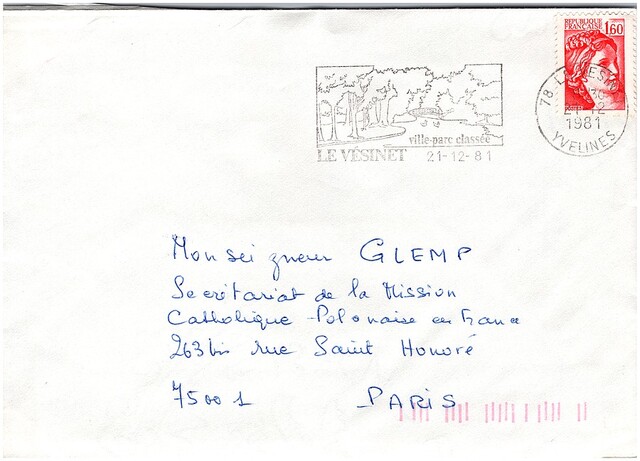 REPUBLIQUE FRANÇAISE 1,60
78 - LE VESINET
21-12
1981
YVELINES
ville-parc classée
LE VÉSINET 21-12-81
Monseigneur GLEMP
Secrétariat de la Mission
Catholique Polonaise en France
263 bis rue Saint Honoré
75001 PARIS